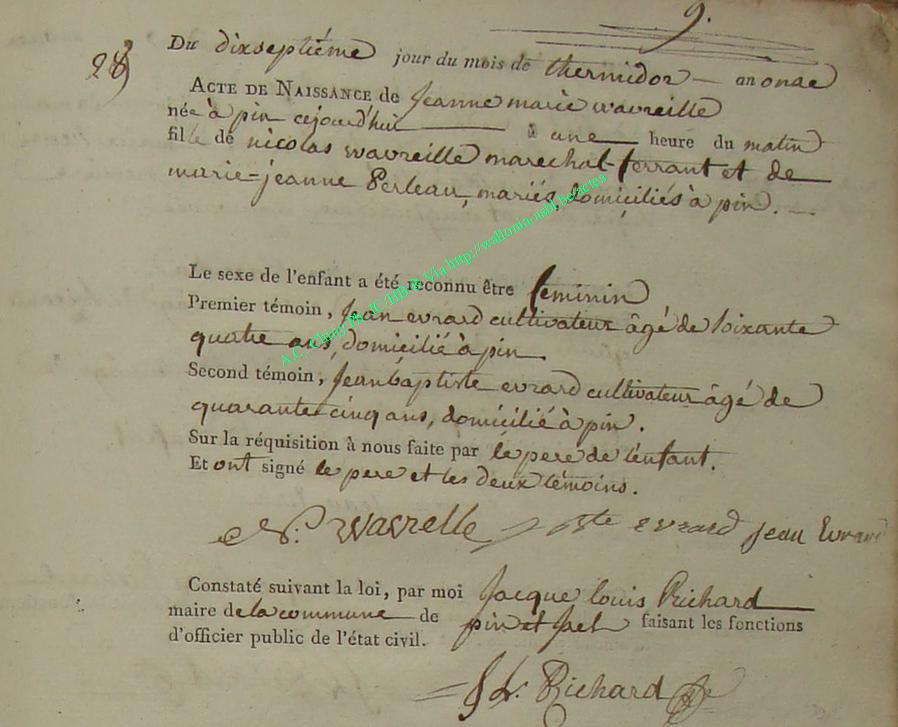 9.
28
Du dixseptiéme jour du mois de thermidor an onze
ACTE DE NAISSANCE de Jeanne marie wavreille
née à pin cejourd'hui à une heure du matin
fille de nicolas wavreille marechal-ferrant et de
marie-jeanne Perleau, mariés, domiciliés à pin.
Le sexe de l'enfant a été reconnu être feminin
Premier témoin, Jean evrard cultivateur âgé de soixante
quatre ans, domicilié à pin
Second témoin, Jean baptiste evrard cultivateur âgé de
quarante cinq ans, domicilié à pin.
Sur la réquisition à nous faite par le pere de l'enfant.
Et ont signé le pere et les deux témoins.
N. wavrelle evrard jean Evrard
Constaté suivant la loi, par moi Jacque louis Richard
maire de la commune de pin et faisant les fonctions
d'officier public de l'état civil.
Richard